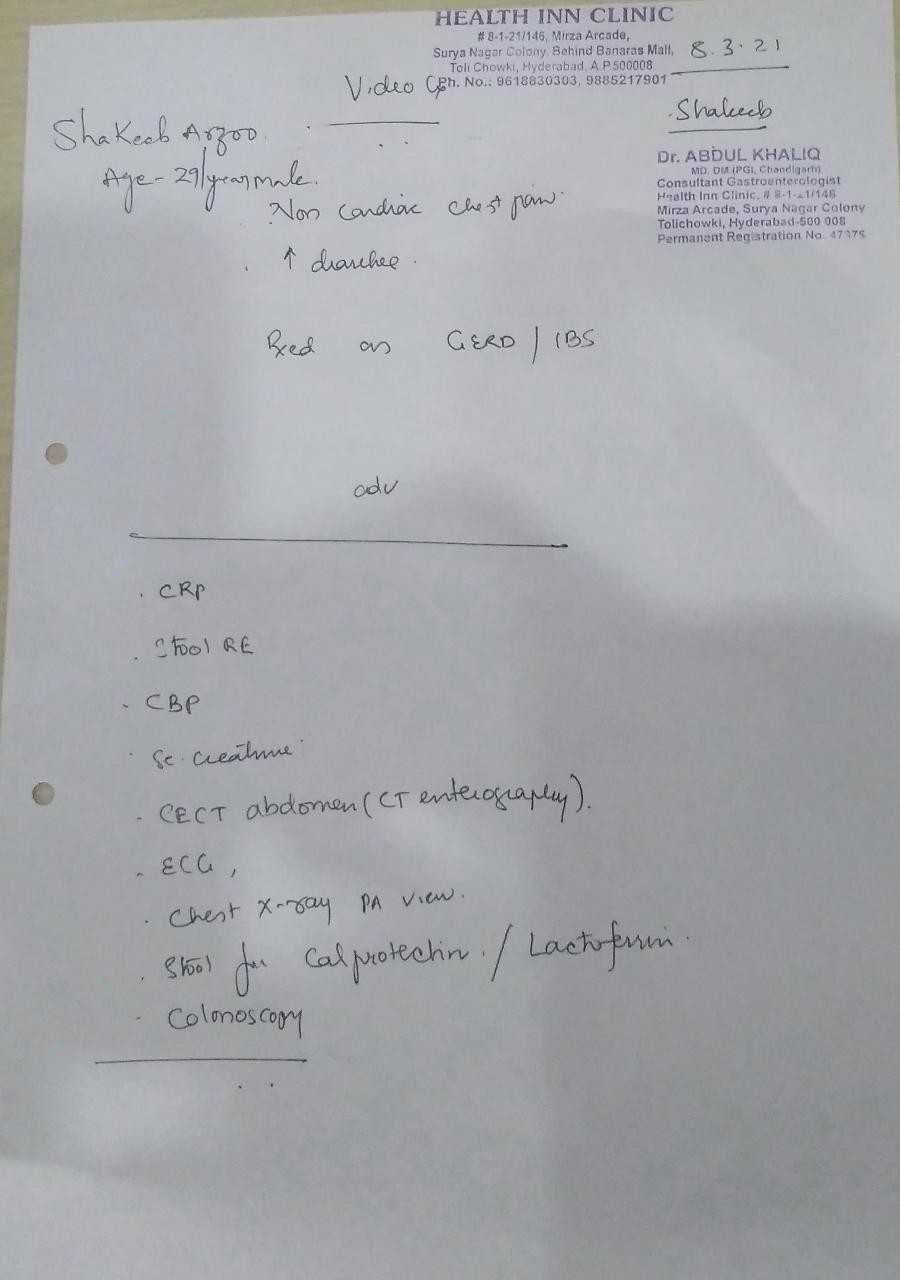 HEALTH INN CLINIC
# 8-1-21/146, Mirza Arcade,
Surya Nagar Colony, Behind Banaras Mall,
Toli Chowki, Hyderabad, A.P.500008
Ph. No.: 9618830303, 9885217901
8.3.21
Video
Shakeeb
Shakeeb Arzoo
Dr. ABDUL KHALIQ
MD, DM (PGI, Chandigarh)
Consultant Gastroenterologist
Health Inn Clinic, # 8-1-21/146
Mirza Arcade, Surya Nagar Colony
Tolichowki, Hyderabad-500 008
Permanent Registration No. 47375
Age - 29/year male.
Non cardiac chest pain.
↑ diarrhee.
Rxed as GERD / IBS
adv
. CRP
. Stool RE
- CBP
. Sc. creatinine
- CECT abdomen (CT enterography).
- ECG,
. Chest X-ray PA view.
. Stool for Calprotectin. / Lactoferrin.
- Colonoscopy